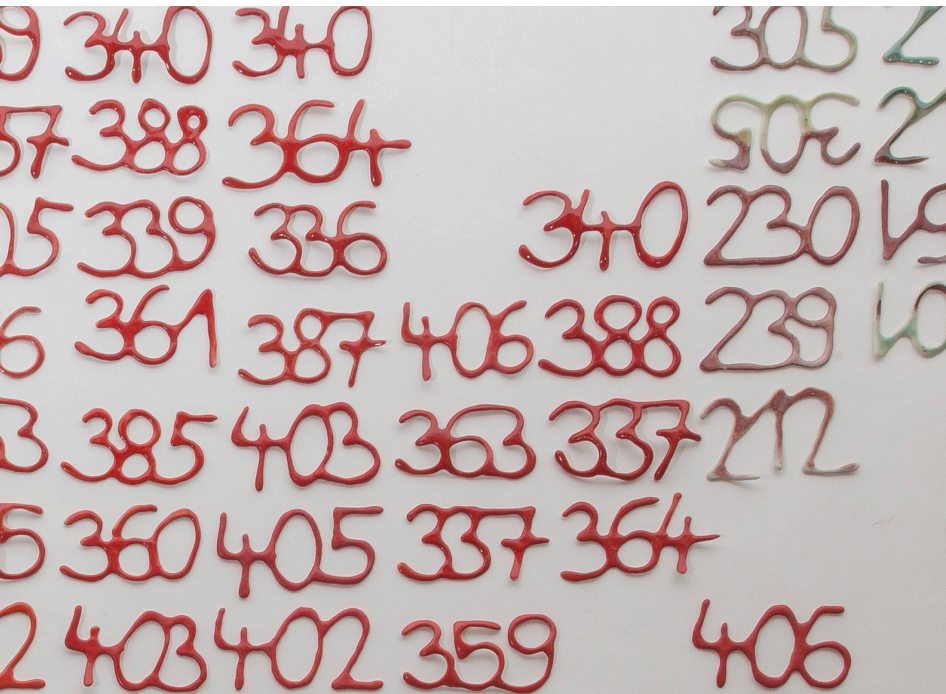 340 340 305
388 364 305
339 336 340 230
361 387 406 388 239
385 403 363 337 212
360 405 337 364
403 402 359 406